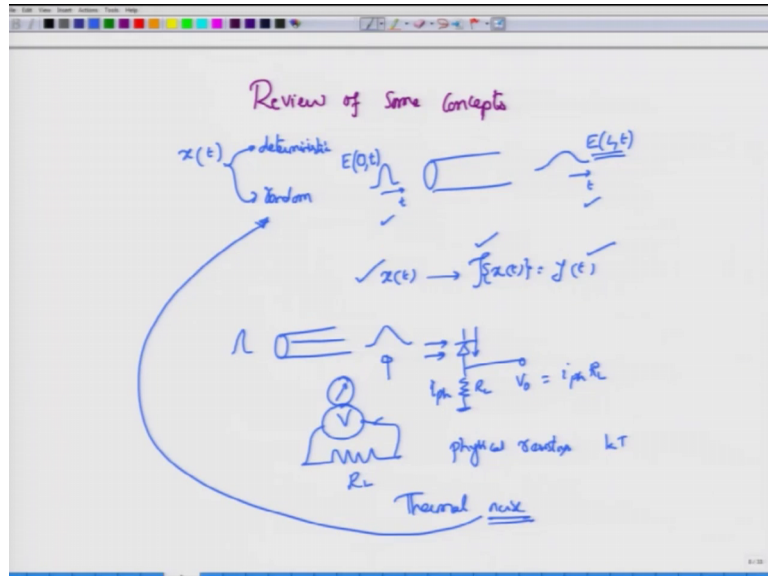 Edit View Insert Actions Tools Help
Review of Some Concepts
x(t) deterministic
random
E(0,t)
t
E(L,t)
t
x(t) → T{x(t)} = y(t)
i_ph R_L V_0 = i_ph R_L
V
R_L
physical resistor kT
Thermal noise